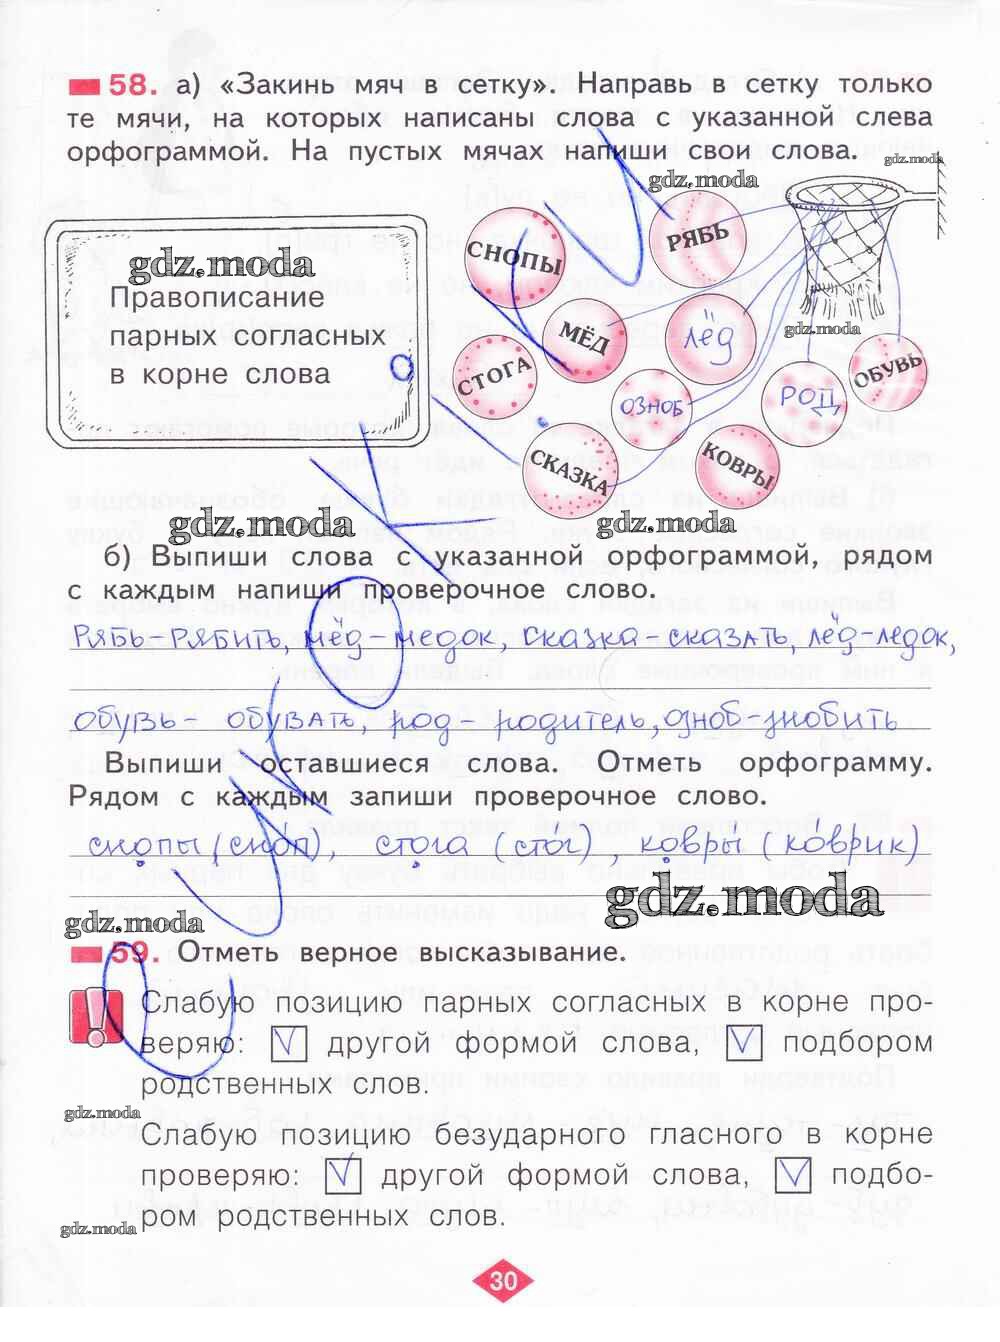 58. а) «Закинь мяч в сетку». Направь в сетку только
те мячи, на которых написаны слова с указанной слева
орфограммой. На пустых мячах напиши свои слова.
gdz.moda
gdz.moda
gdz.moda
Правописание
парных согласных
в корне слова
СНОПЫ
РЯБЬ
МЁД
лёд
gdz.moda
СТОГА
ОЗНОБ
РОД
ОБУВЬ
СКАЗКА
КОВРЫ
gdz.moda
gdz.moda
б) Выпиши слова с указанной орфограммой, рядом
с каждым напиши проверочное слово.
Рябь-рябить, мёд-медок, сказка-сказать, лёд-ледок,
обувь - обувать, род-родитель, озноб-знобить
Выпиши оставшиеся слова. Отметь орфограмму.
Рядом с каждым запиши проверочное слово.
снопы (сноп), стога (стог), ковры (коврик)
gdz.moda
gdz.moda
59. Отметь верное высказывание.
Слабую позицию парных согласных в корне про-
веряю: V другой формой слова, V подбором
родственных слов.
gdz.moda
Слабую позицию безударного гласного в корне
проверяю: V другой формой слова, V подбо-
ром родственных слов.
gdz.moda
30